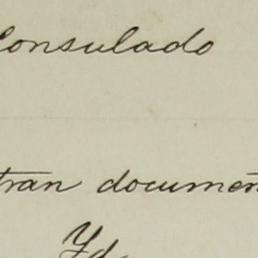 Consulado
tran documen
Yd